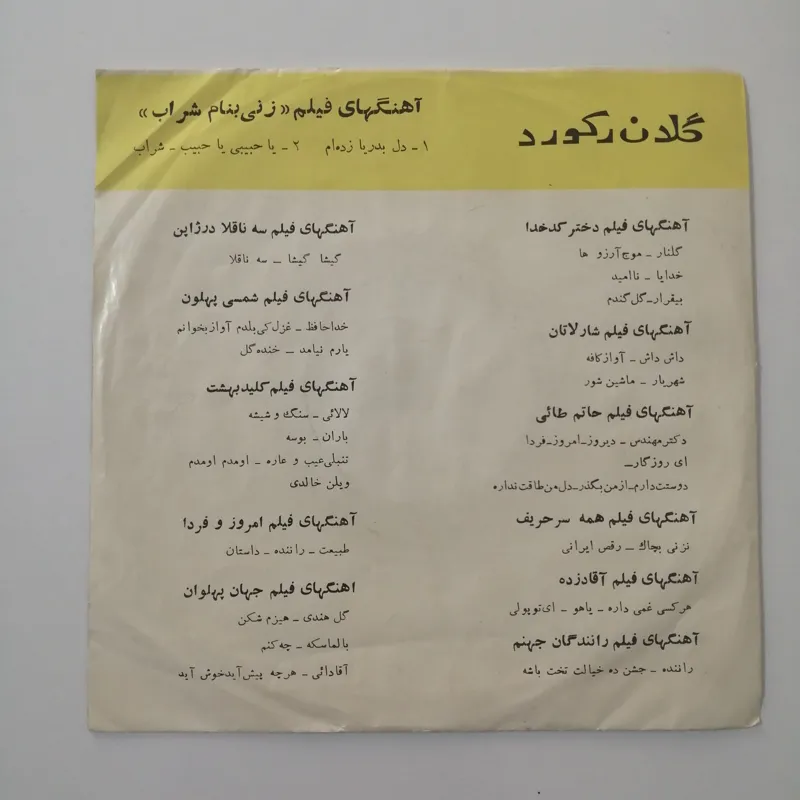 گلدن رکورد
آهنگهای فیلم «زنی بنام شراب»
۱ - دل بدریا زده‌ام ۲ - یا حبیبی یا حبیب - شراب
آهنگهای فیلم دختر کدخدا
گلنار - موج آرزو ها
خدایا - ناامید
بیقرار - گل گندم
آهنگهای فیلم شارلاتان
داش داش - آواز کافه
شهریار - ماشین شور
آهنگهای فیلم حاتم طائی
دکتر مهندس - دیروز - امروز - فردا
ای روزگار -
دوستت دارم - از من بگذر - دل من طاقت نداره
آهنگهای فیلم همه سر حریف
نزنی بچاک - رقص ایرانی
آهنگهای فیلم آقادزده
هر کسی غمی داره - یاهو - ای تو پولی
آهنگهای فیلم رانندگان جهنم
راننده - جشن ده خیالت تخت باشه
آهنگهای فیلم سه ناقلا درژاپن
گیشا گیشا - سه ناقلا
آهنگهای فیلم شمسی پهلون
خداحافظ - غزل کی بلدم آواز بخوانم
یارم نیامد - خنده گل
آهنگهای فیلم کلید بهشت
لالائی - سنگ و شیشه
باران - بوسه
تنبلی عیب و عاره - اومدم اومدم
ویلن خالدی
آهنگهای فیلم امروز و فردا
طبیعت - راننده - داستان
اهنگهای فیلم جهان پهلوان
گل هندی - هیزم شکن
بالماسکه - چه کنم
آقادائی - هرچه پیش آید خوش آید